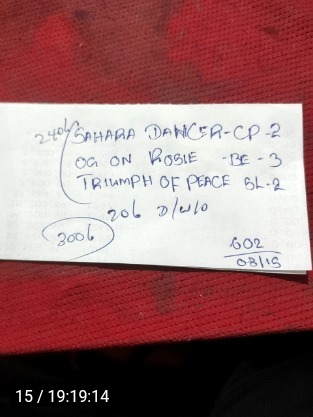 240/ SAHARA DANCER-CP-2
OG ON ROSIE -BE-3
TRIUMPH OF PEACE BL-2
206 D/W/O
3006
602
08/15
15 / 19:19:14